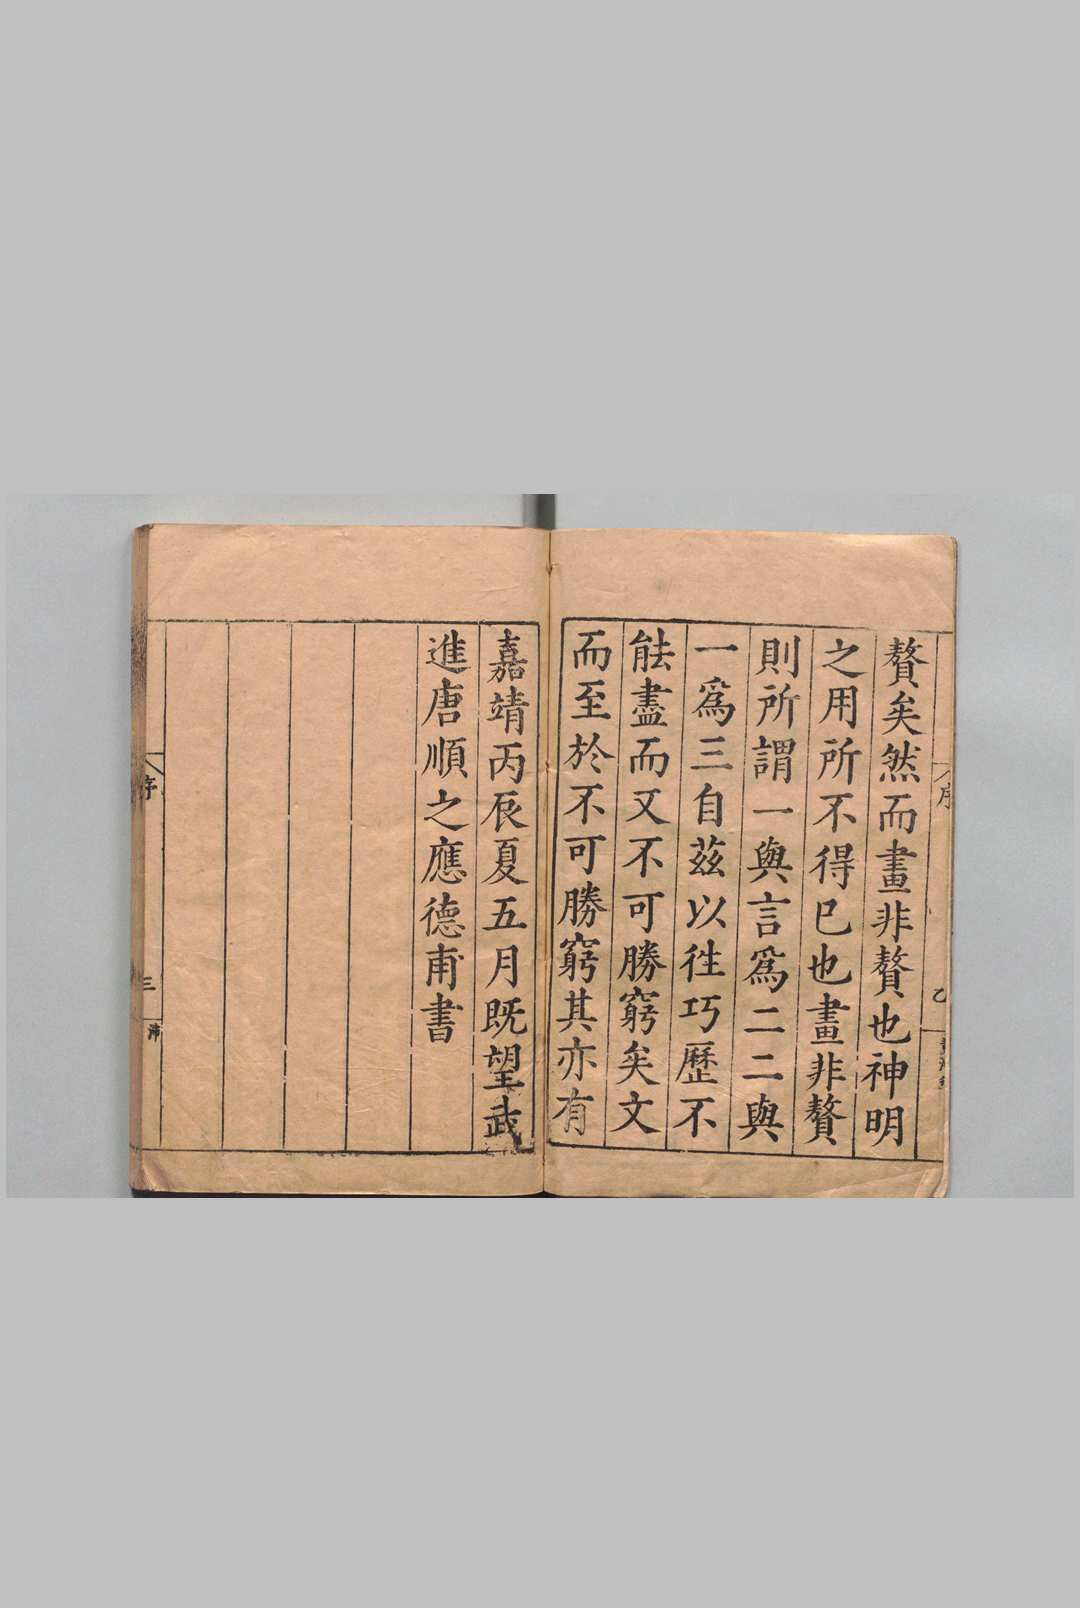 贅矣然而畫非贅也神明
之用所不得已也畫非贅
則所謂一與言爲二二與
一爲三自茲以徃巧歷不
能盡而又不可勝窮矣文
而至於不可勝窮其亦有
嘉靖丙辰夏五月既望武
進唐順之應德甫書
序
三
序